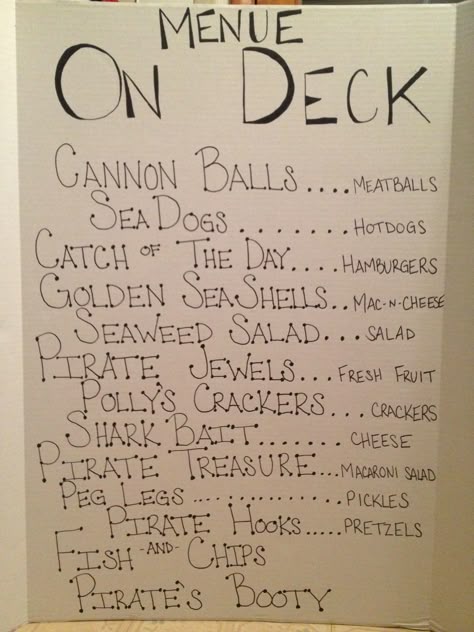 MENUE
ON DECK
CANNON BALLS....MEATBALLS
SEA DOGS........HOTDOGS
CATCH OF THE DAY....HAMBURGERS
GOLDEN SEASHELLS..MAC-N-CHEESE
SEAWEED SALAD...SALAD
PIRATE JEWELS...FRESH FRUIT
POLLY'S CRACKERS...CRACKERS
SHARK BAIT.......CHEESE
PIRATE TREASURE...MACARONI SALAD
PEG LEGS................PICKLES
PIRATE HOOKS.....PRETZELS
FISH -AND- CHIPS
PIRATE'S BOOTY